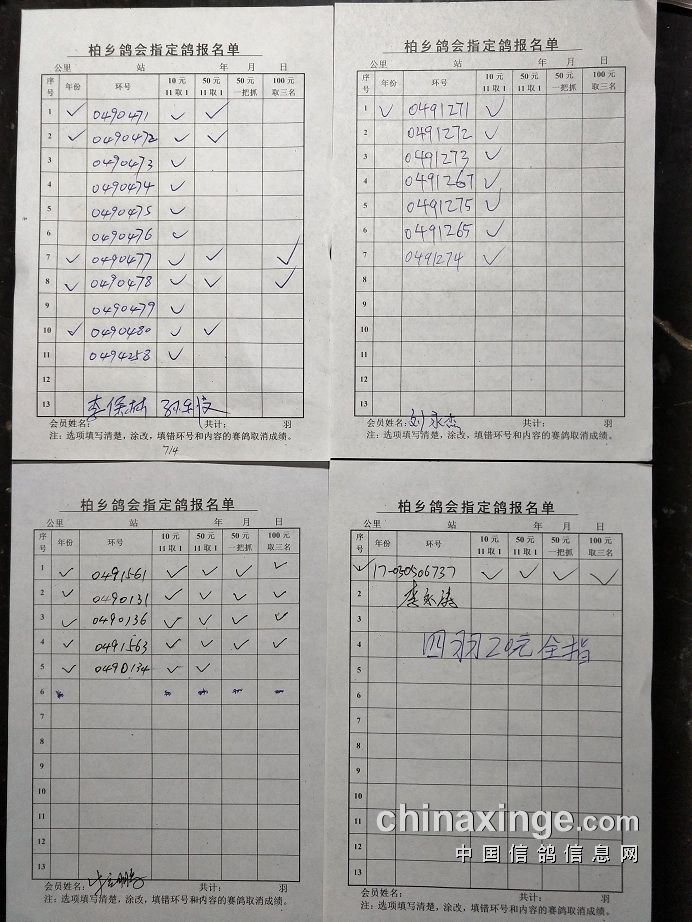 柏乡鸽会指定鸽报名单
公里 站 年 月 日
序号 年份 环号 10元11取1 50元11取1 50元一把抓 100元取三名
1 ✓ 0490471 ✓ ✓
2 ✓ 0490472 ✓ ✓
3 0490473 ✓
4 0490474 ✓
5 0490475 ✓
6 0490476 ✓
7 ✓ 0490477 ✓ ✓ ✓
8 ✓ 0490478 ✓ ✓ ✓
9 0490479 ✓
10 ✓ 0490480 ✓ ✓
11 0494258 ✓
12
13
李保林
会员姓名: 共计: 羽
注:选项填写清楚,涂改,填错环号和内容的赛鸽取消成绩。
714
柏乡鸽会指定鸽报名单
公里 站 年 月 日
序号 年份 环号 10元11取1 50元11取1 50元一把抓 100元取三名
1 ✓ 0491271 ✓
2 0491272 ✓
3 0491273 ✓
4 0491267 ✓
5 0491275 ✓
6 0491265 ✓
7 0491274 ✓
8
9
10
11
12
13
会员姓名: 刘永杰 共计: 羽
注:选项填写清楚,涂改,填错环号和内容的赛鸽取消成绩。
柏乡鸽会指定鸽报名单
公里 站 年 月 日
序号 年份 环号 10元11取1 50元11取1 50元一把抓 100元取三名
1 ✓ 0491561 ✓ ✓ ✓ ✓
2 ✓ 0490131 ✓ ✓ ✓ ✓
3 ✓ 0490136 ✓ ✓ ✓ ✓
4 ✓ 0491563 ✓ ✓ ✓ ✓
5 ✓ 0490134 ✓ ✓
6
7
8
9
10
11
12
13
会员姓名: 共计: 羽
注:选项填写清楚,涂改,填错环号和内容的赛鸽取消成绩。
柏乡鸽会指定鸽报名单
公里 站 年 月 日
序号 年份 环号 10元11取1 50元11取1 50元一把抓 100元取三名
✓ 17-030506737 ✓ ✓ ✓ ✓
2 李永涛
3
4 四羽20元全指
5
6
7
8
9
10
11
12
13
会员姓名: 共计: 羽
注:选项填写清楚,涂改,填错环号和内容的赛鸽取消成绩。
chinaxinge.com
中国信鸽信息网